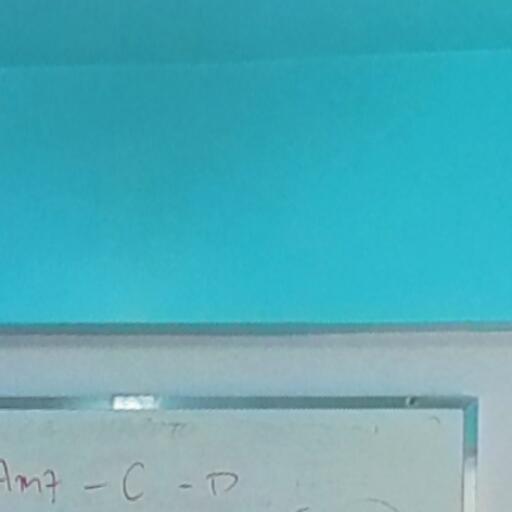 Am7 - C - D